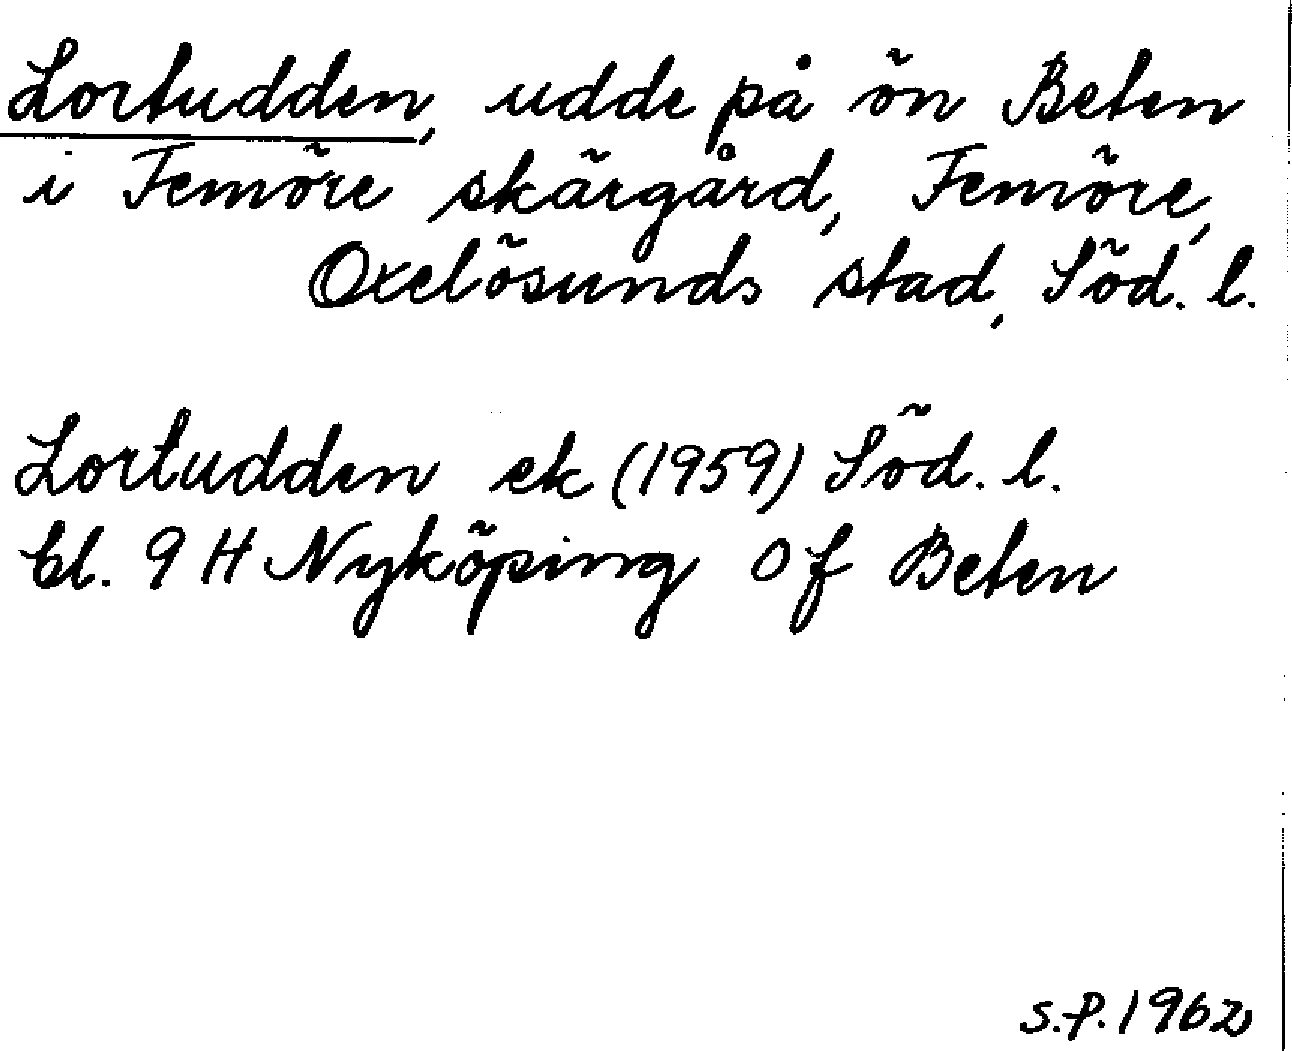 Lortudden, udde på ön Beten
i Femöre skärgård, Femöre,
Oxelösunds stad, Söd. l.
Lortudden ek (1959) Söd. l.
bl. 9 H Nyköping Of Beten
S.P. 1962